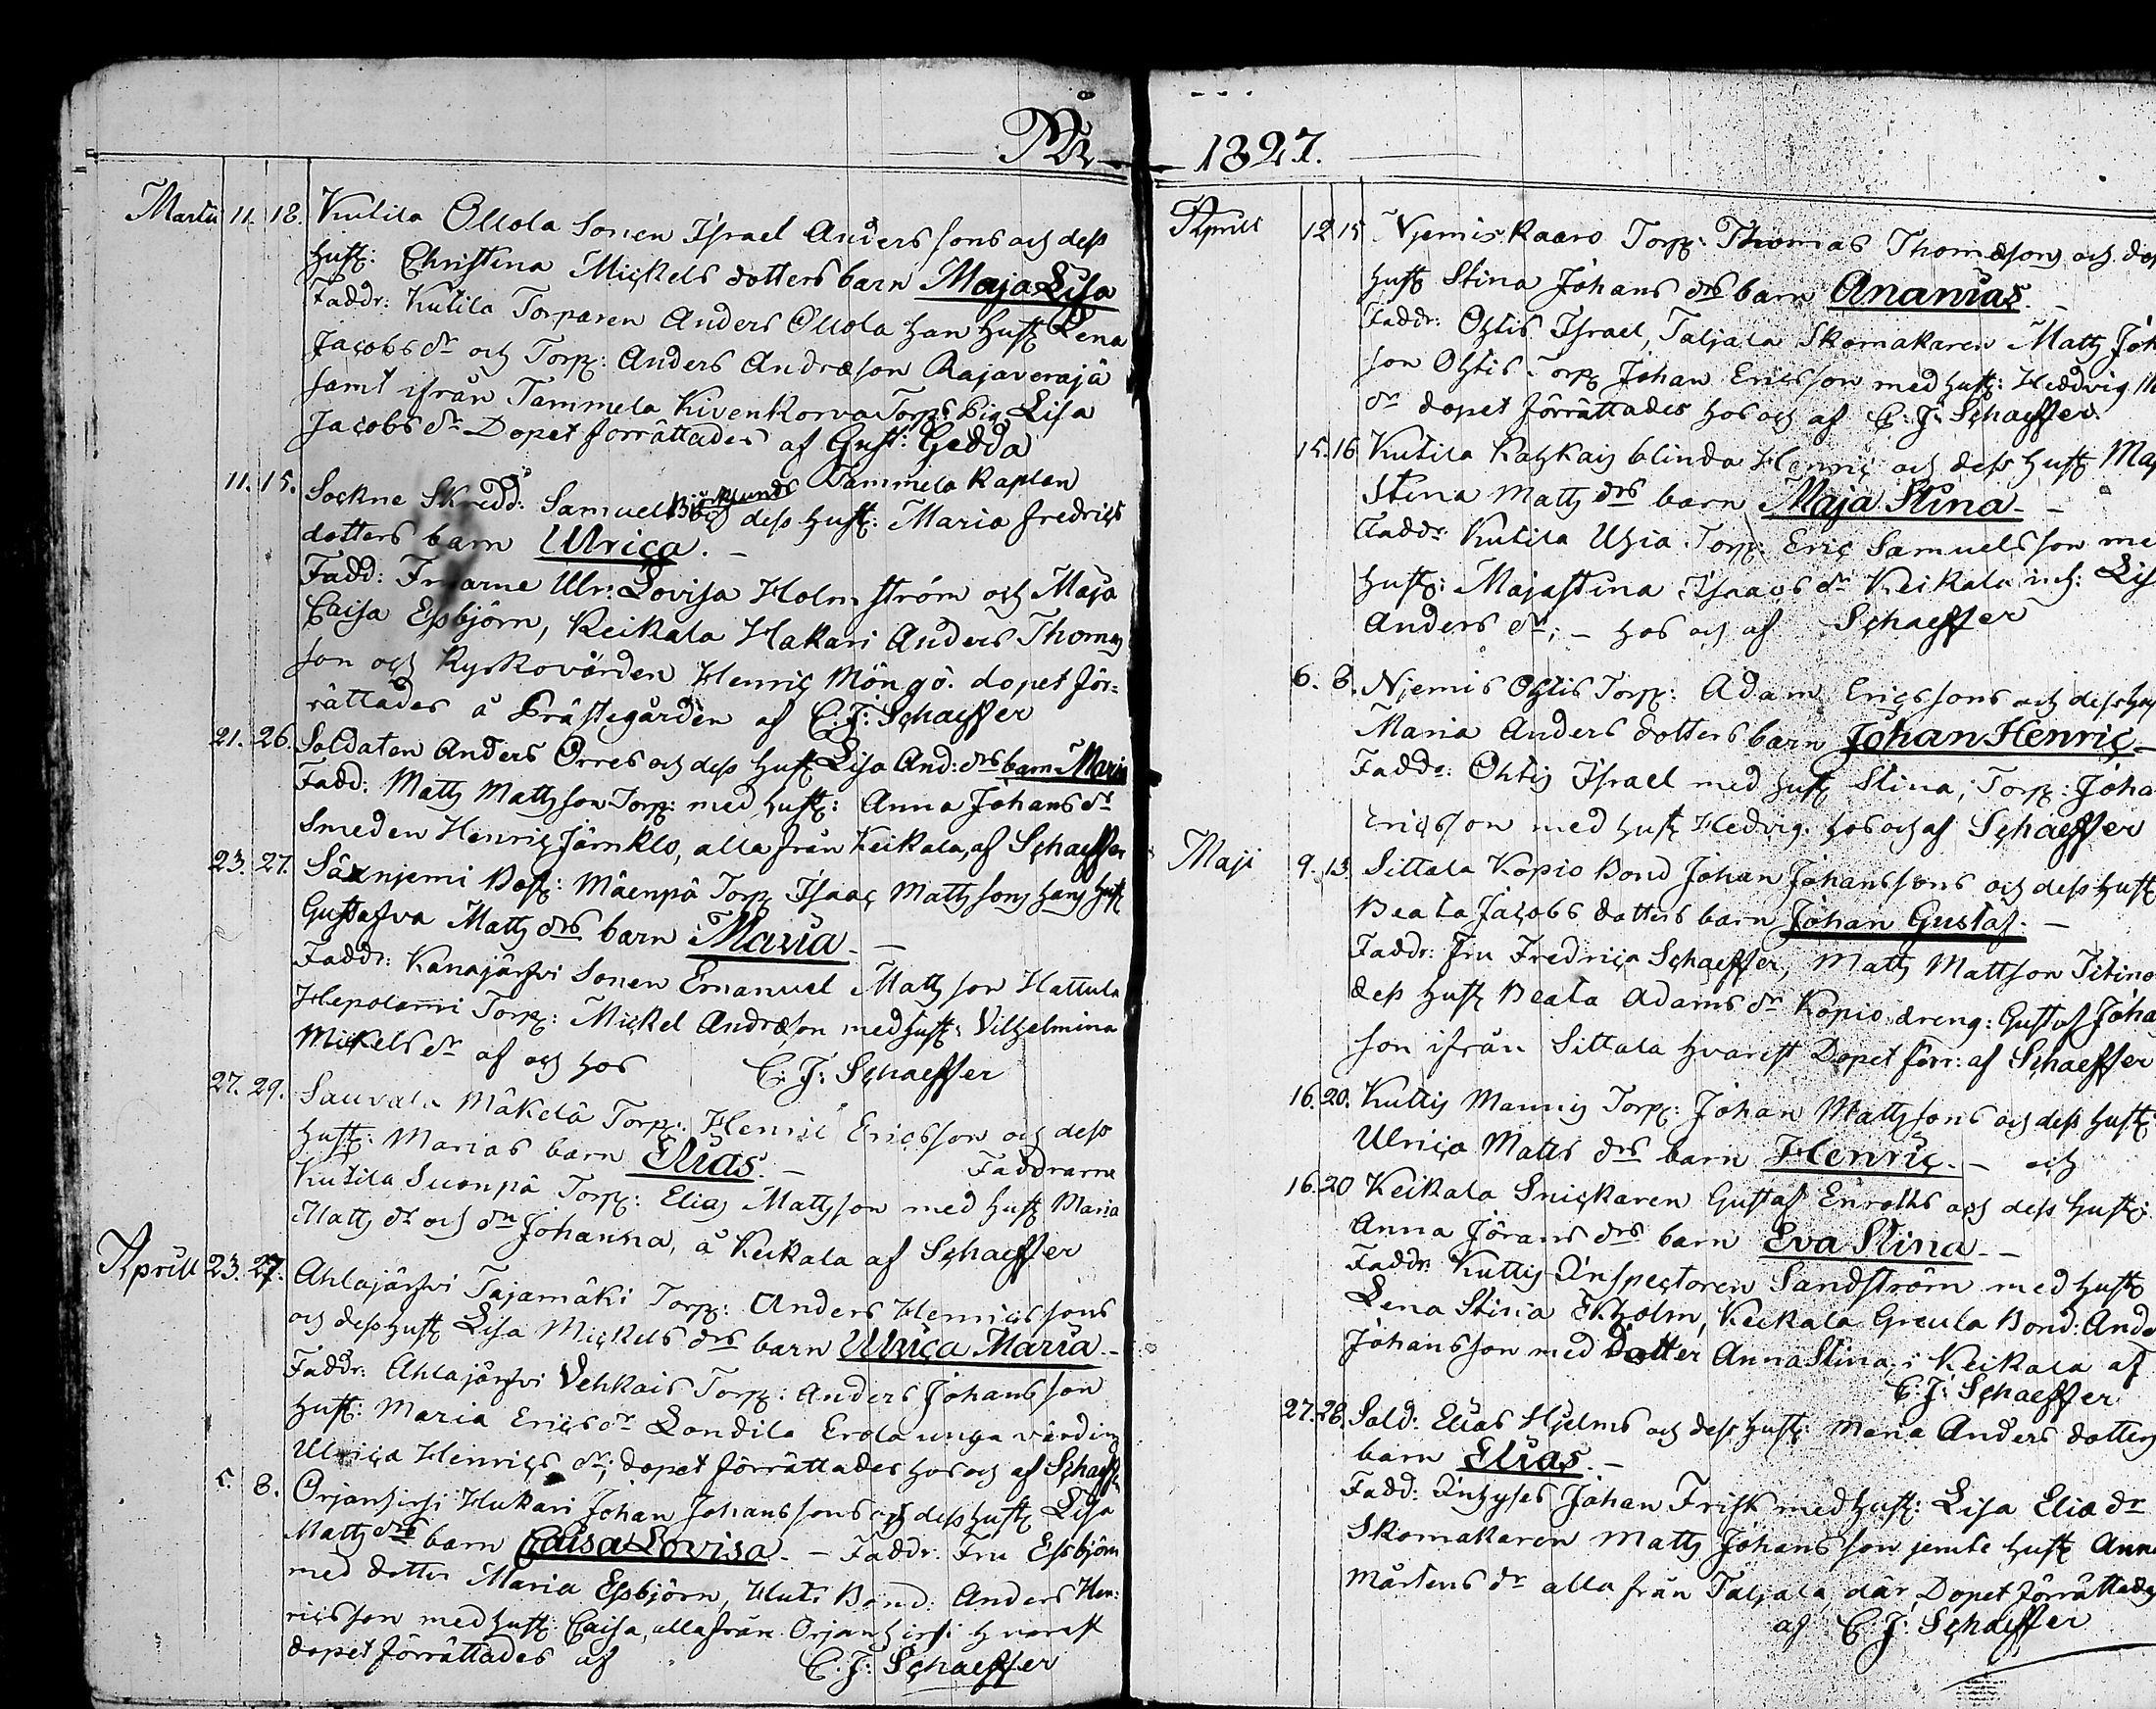 1827.
Martii 11. 18. Kutila Ollola Sonen Israel Anders sons och dess
Hust: Christina Mickels dotters barn Maja Lisa
Faddr: Kutila Torparen Anders Ollola han Hust Lena
Jacobs dr och Torp: Anders Andræson Rajaveraja
samt ifrån Tammela Kivenkorva Torps Pig Lisa
Jacobs dr Dopet forrättades af Gust: Gedda
Tammela Kaplan
11. 15. Sockne Skredd: Samuel Björklunds dess Hust: Maria Fredrics
dotters barn Ulrica. -
Fadd: Fruarne Ulr: Lovisa Holmström och Maja
Caisa Essbjörn, Keikala Hakari Anders Thomas
son och Kyrkovärden Henric Möngö. dopet för=
rättades å Prästegården af C. J: Schaeffer
21. 26. Soldaten Anders Orres och dess Hust Lisa And: drs barn Maria
Fadd: Matts Mattsson Torp: med Hust: Anna Johans dr
Smeden Henric Järnklo, alla från Keikala, af Schaeffer
23. 27. Säxnjemi Bost: Mäenpä Torp Isaac Mattsons hans Hust
Gustafva Matts drs barn Maria -
Faddr: Kanajärfvi Sonen Emanuel Mattsson Hattula
Hepolami Torp: Mickel Andræson med Hust: Vilhelmina
Mickels dr af och hos C: J: Schaeffer
27. 29. Sauvala Mäkelä Torp: Henric Ericsson och dess
Hust: Marias barn Elias. - Faddrarne
Kutila Suonpä Torp: Elias Mattsson med Hust Maria
Matts dr och dr Johanna, å Keikala af Schaeffer
Aprill 23. 27. Ahlajärfvi Tajamäki Torp: Anders Henricssons
och dess Hust Lisa Mickels drs barn Ulrica Maria -
Faddr: Ahlajärfvi Vehkais Torp: Anders Johansson
Hust: Maria Erics dr Sondila Erola unga värdin
Ulrica Henrics dr; dopet förrättades hos och af Schaeffer
5. 8. Orjanhirsi Hukari Johan Johanssons och dess Hust Lisa
Matts drs barn Caisa Lovisa. - Faddr: Fru Essbjörn
med dotter Maria Essbjörn, Huti Bond: Anders Hen:
ricsson med Hust: Caisa, alla från Orjanhirsi hvarest
dopet förrättades af C. J: Schaeffer
Aprill 12 15 Njemis Kaaro Torp: Thomas Thomæsons och
Hust Stina Johans drs barn Ananias. -
Faddr: Ohtis Israel, Taljala Skomakaren Matts
son Ohtis Torp Johan Ericsson med Hust: Hedvig
dr dopet förrättades hos och af C: J: Schaeffer.
15. 16 Kutila Kahkais blinda Henric och dess Hust
Stina Matts drs barn Maja Stina -
Faddr: Kutila Uhia Torp: Eric Samuelsson
Hust: Majastina Isaacs dr Keikala inh:
Anders dr; - hos och af Schaeffer
6. 8. Njemis Ohtis Torp: Adam Ericssons och dess
Maria Anders dotters barn Johan Henric -
Faddr: Ohtis Israel med Hust Stina, Torp:
Ericsson med Hust Hedvig. hos och af Schaeffer
Maji 9. 13. Sittala Kopio Bond Johan Johanssons och dess Hust
Beata Jacobs dotters barn Johan Gustaf. -
Faddr: Fru Fredrica Schaeffer, Matts Mattson
dess Hust Beata Adams dr Kopio dreng: Gustaf
son ifrån Sittala hvarest Dopet förr: af Schaeffer
16. 20. Kuttis Mannis Torp: Johan Mattssons och dess Hust:
Ulrica Matts drs barn Henric. - och
16. 20 Keikala Snickaren Gustaf Enroths och dess Hust:
Anna Jörans drs barn Eva Stina -
Faddr: Kuttis Inspectoren Sandström med Hust
Lena Stina Ekholm, Keikala Greula Bond:
Johansson med Dotter Anna Stina, i Keikala af
C: J: Schaeffer
27. 28. Sold: Elias Hjelms och dess Hust: Maria Anders dotters
barn Elias. -
Fadd: Inhyses Johan Frisk med Hust: Lisa Elia dr
Skomakaren Matts Johansson jemte Hust Anna
Mårtens dr alla från Taljala, där Dopet förrättades
af C. J: Schaeffer